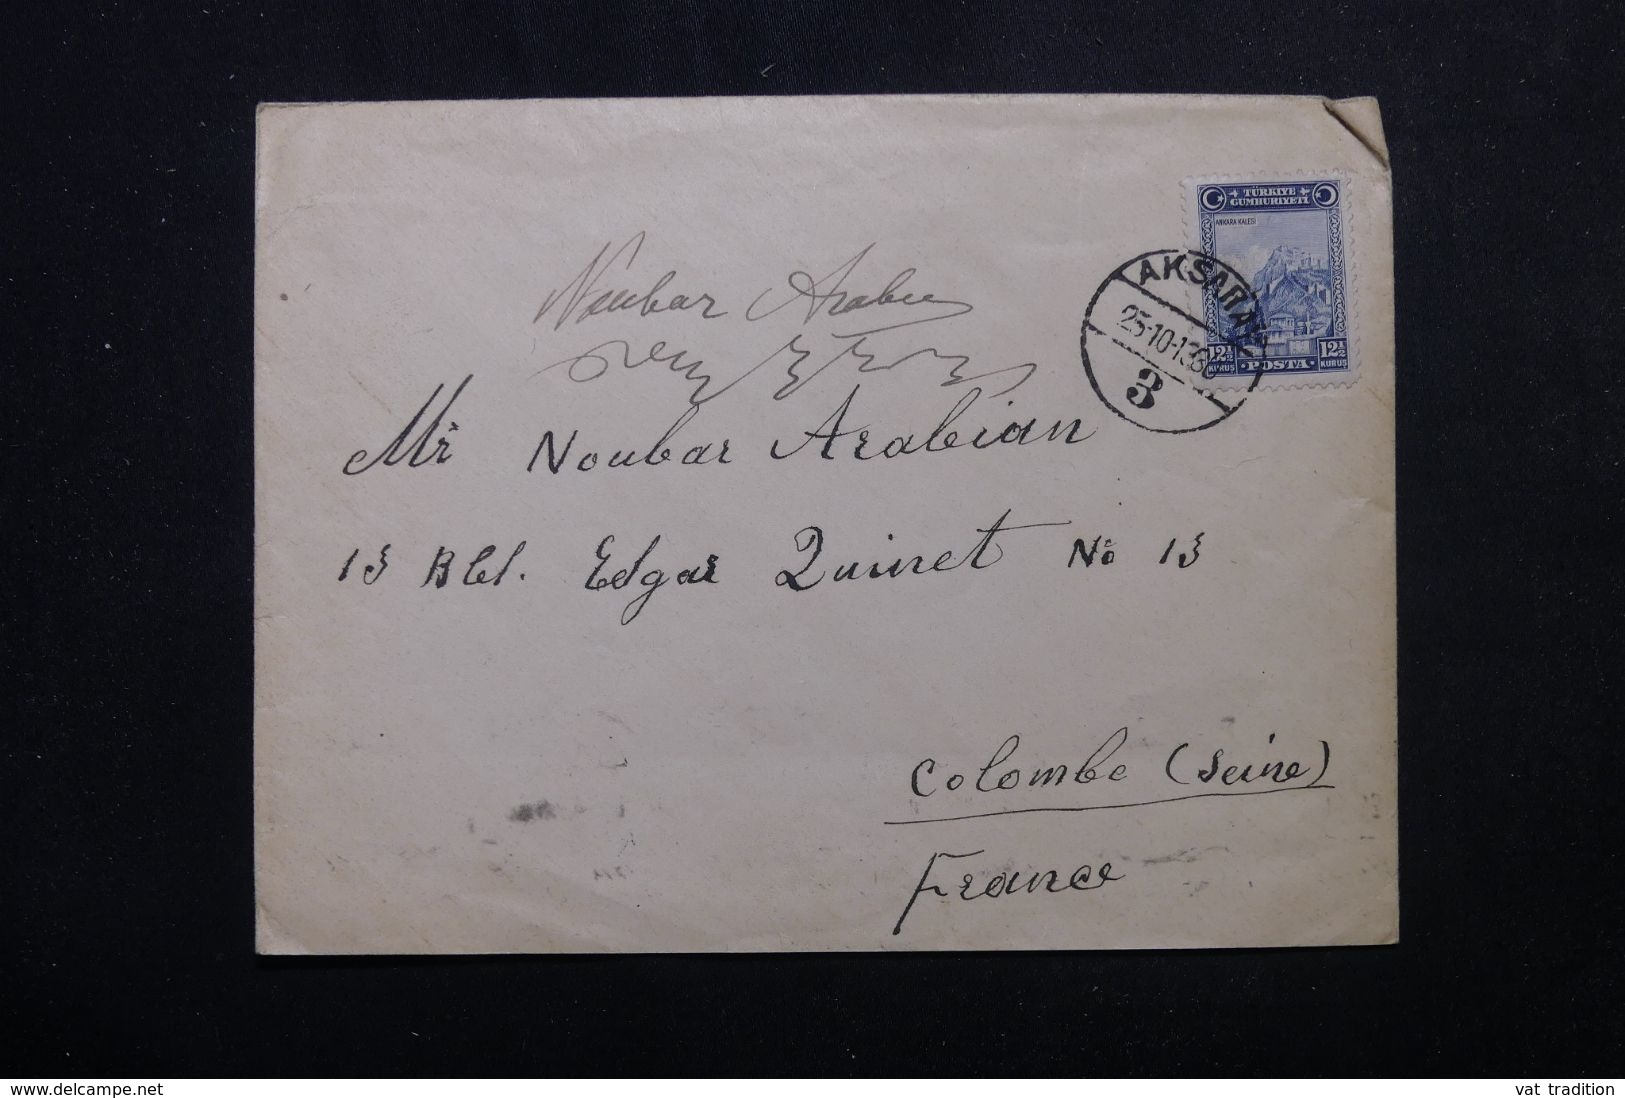 TÜRKİYE
CUMHURIYETI
ANKARA KALESI
12½ KURUŞ
POSTA
12½ KURUŞ
AKSARAY
25·10·1930
3
Noubar Arabia
Mr Noubar Arabian
13 Bld. Edgar Quinet No 13
Colombe (Seine)
France
www.delcampe.net
vat_tradition